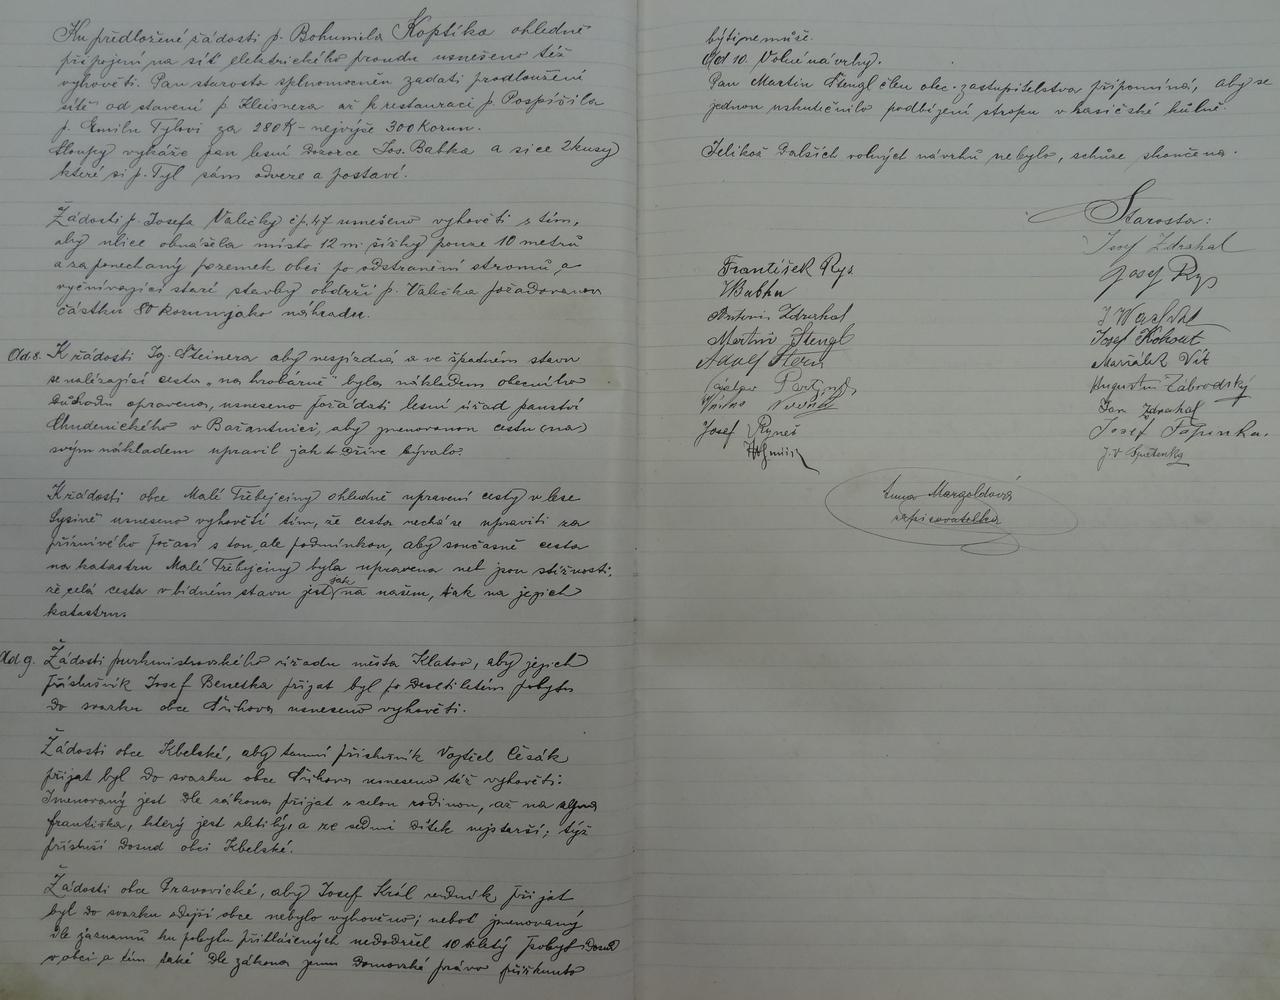 Ku předložené žádosti p. Bohumila Koptíka ohledně
připojení na síť elektrického proudu usnešeno též
vyhověti. Pan starosta splnomocněn zadati prodloužení
sítě od stavení p. Kleisnera až k restauraci p. Pospíšila
p. Emilu Tylovi za 280 K – nejvýše 300 korun.
Sloupy vykáže pan lesní dozorce Jos. Babka a sice 2 kusy
které si p. Tyl sám odveze a postaví.
Žádosti p. Josefa Valičky čp. 47 usnešeno vyhověti s tím,
aby ulice obnášela místo 12 m. šířky pouze 10 metrů
a za ponechaný pozemek obci po odstranění stromů a
vyčnívající staré stavby obdrží p. Valička požadovanou
částku 80 korun jako náhradu.
Ad 8. K žádosti Ig. Steinera aby nesjízdná a ve špatném stavu
se nalézající cesta „na hrobárně" byla nákladem obecního
důchodu opravena, usneseno požádati lesní úřad panství
Chudenického v Bažantnici, aby jmenovanou cestu (na)
svým nákladem upravil jak to dříve bývalo.
K žádosti obce Malé Třebejčiny ohledně upravení cesty v lese
Lysině usneseno vyhověti tím, že cesta nechá se upraviti za
příznivého počasí s tou ale podmínkou, aby současně cesta
na katastru Malé Třebejčiny byla upravena neb jsou stížnosti,
že celá cesta v bídném stavu jest jak na našem, tak na jejich
katastru.
Ad 9. Žádosti purkmistrovského úřadu města Klatov, aby jejich
příslušník Josef Beneška přijat byl po desítiletém pobytu
do svazku obce Švihova usneseno vyhověti.
Žádosti obce Kbelské, aby tamní příslušník Vojtěch Cěsák
přijat byl do svazku obce Švihova usneseno též vyhověti.
Jmenovaný jest dle zákona přijat s celou rodinou, až na syna
Františka, který jest zletilý, a ze sedmi dítek nejstarší; týž
přísluší dosud obci Kbelské.
Žádosti obce Pravovické, aby Josef Král zedník přijat
byl do svazku zdejší obce nebylo vyhověno; neboť jmenovaný
dle záznamů ku pobytu přihlášených nedodržel 10 kletý pobyt dosud
v obci a tím také dle zákona jemu domovské právo přiřknuto
býti nemůže.
Ad 10. Volné návrhy.
Pan Martin Štengl člen obec. zastupitelstva připomíná, aby se
jednou uskutečnilo podbízení stropu v hasičské kůlně.
Jelikož dalších volných návrhů nebylo, schůze skončena.
Starosta:
Josef Zdrahal
František Rys
Josef Rys
Babka
Antonín Zdrahal
Martin Štengl
Josef Kohout
Adolf Stern
Maršálek Vít
Augustin Zábrodský
Jan Zdrahal
Josef Ryneš
Josef Papinka.
Anna Margoldová
zapisovatelka